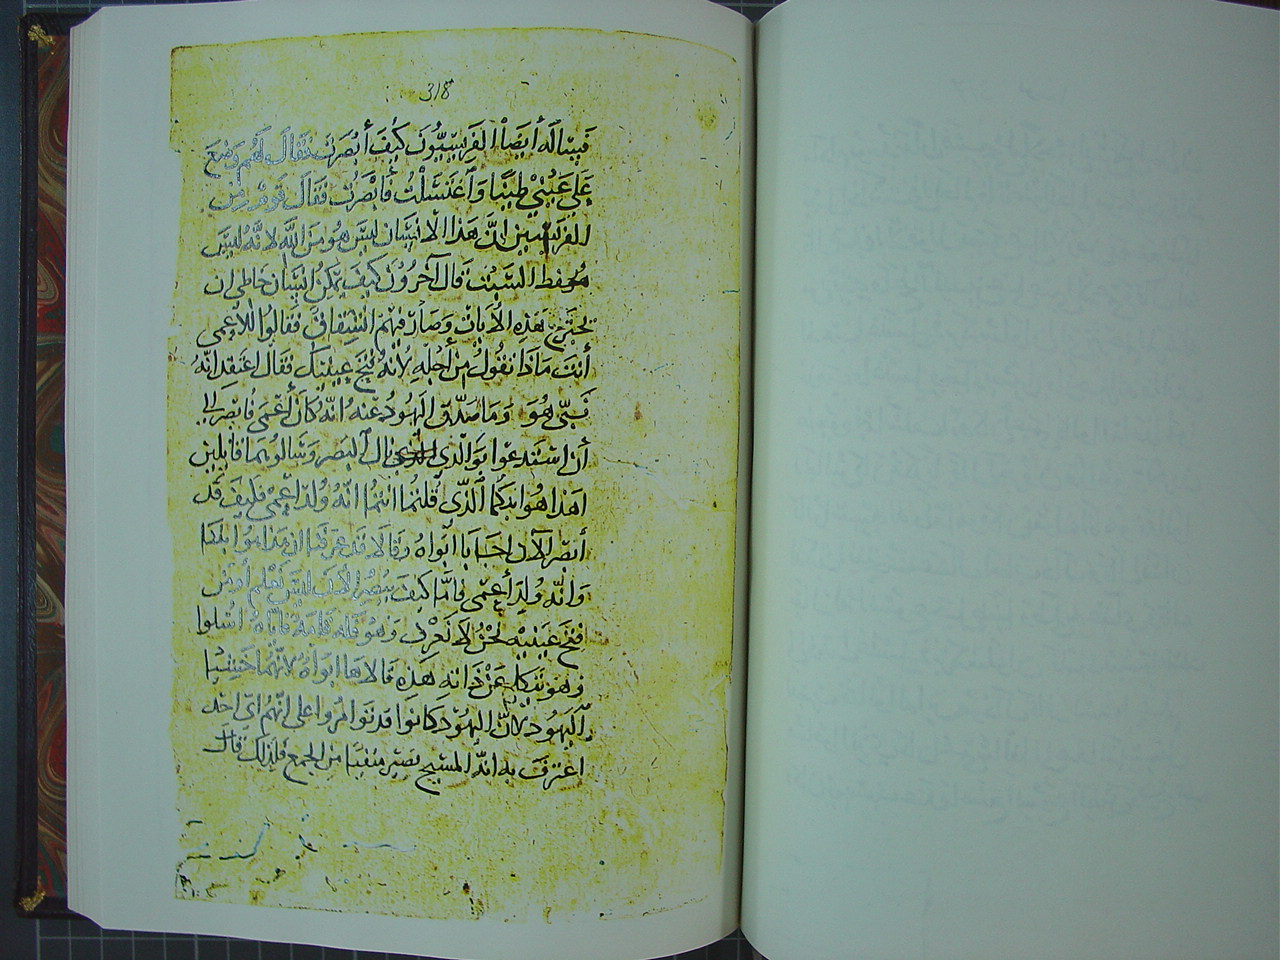 318
فيسٔاله أيضًا الفريسيّون كيف أبصرت فقال لهم وضع
على عيني طينًا واغتسلت فابصرت فقال قوم من
الفريسيين انّ هذا الانسان ليس هو من الله لانه ليس
يحفظ السبت قال آخرون كيف يمكن انسان خاطى ان
يخترع هذه الآيات وصار فيهم انشقاق فقالوا للأعمى
أنت ماذا تقول من أجله لأنه فتح عينيك فقال اعتقد انّه
نبّى هو وما صدّق اليهود عنه انّه كان أعمى فابصر الى
أن استدعوا بوالدي نال البصر وسالوهما قايلين
اهذا هو ابنكما الّذى قلتما انتما انّه ولد أعمى فكيف قد
أبصر الآن اجابا ابواه وقالا قد عرفنا ان هذا هو ابننا
وانّه ولد أعمى فامّا كيف يبصر الآن ليس نعلم أو من
فتح عينيه نحن لا نعرف وهو فله قامة فايّاه اسلوا
وهو يتكلم عن ذاته هذه قالاها ابواه لانّهما خشيا
اليهود لانّ اليهود كانوا قد توامروا على انّهم اىّ احد
اعترف به انّه المسيح يصير منفيًا من المجمع فلذلك قال